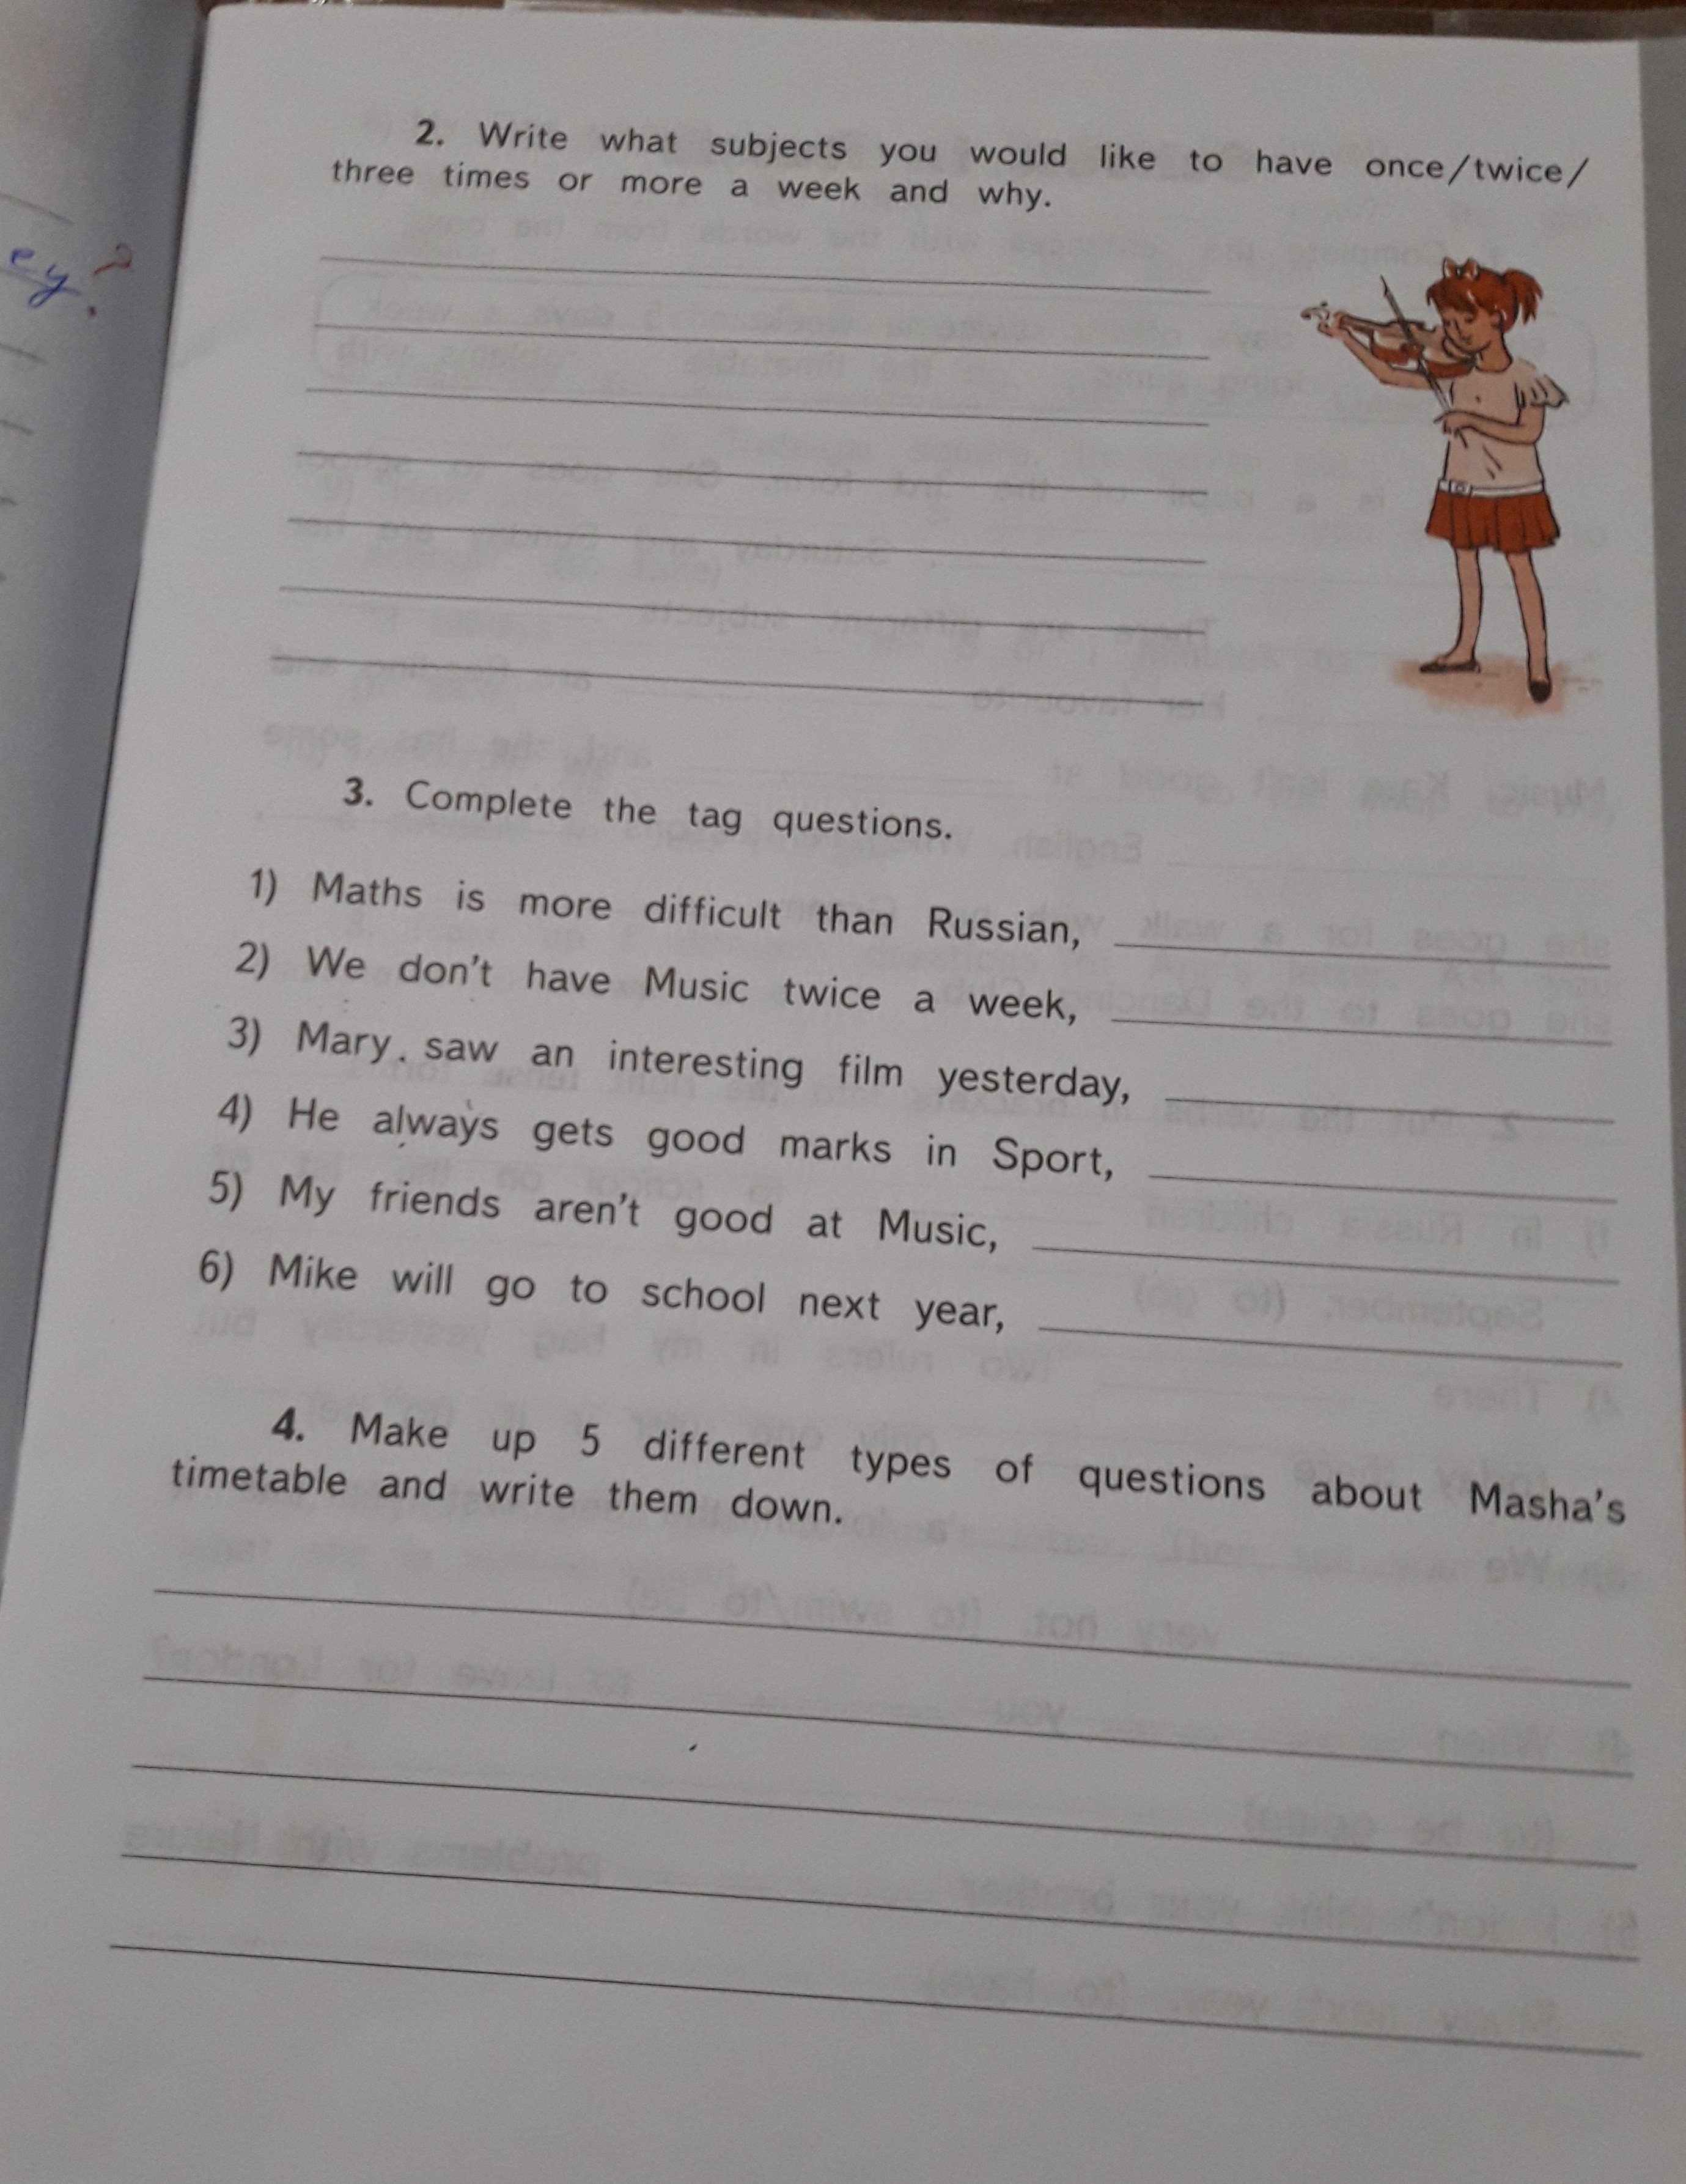 ey?
2. Write what subjects you would like to have once/twice/
three times or more a week and why.
3. Complete the tag questions.
1) Maths is more difficult than Russian,
2) We don't have Music twice a week,
3) Mary saw an interesting film yesterday,
4) He always gets good marks in Sport,
5) My friends aren't good at Music,
6) Mike will go to school next year,
4. Make up 5 different types of questions about Masha's
timetable and write them down.